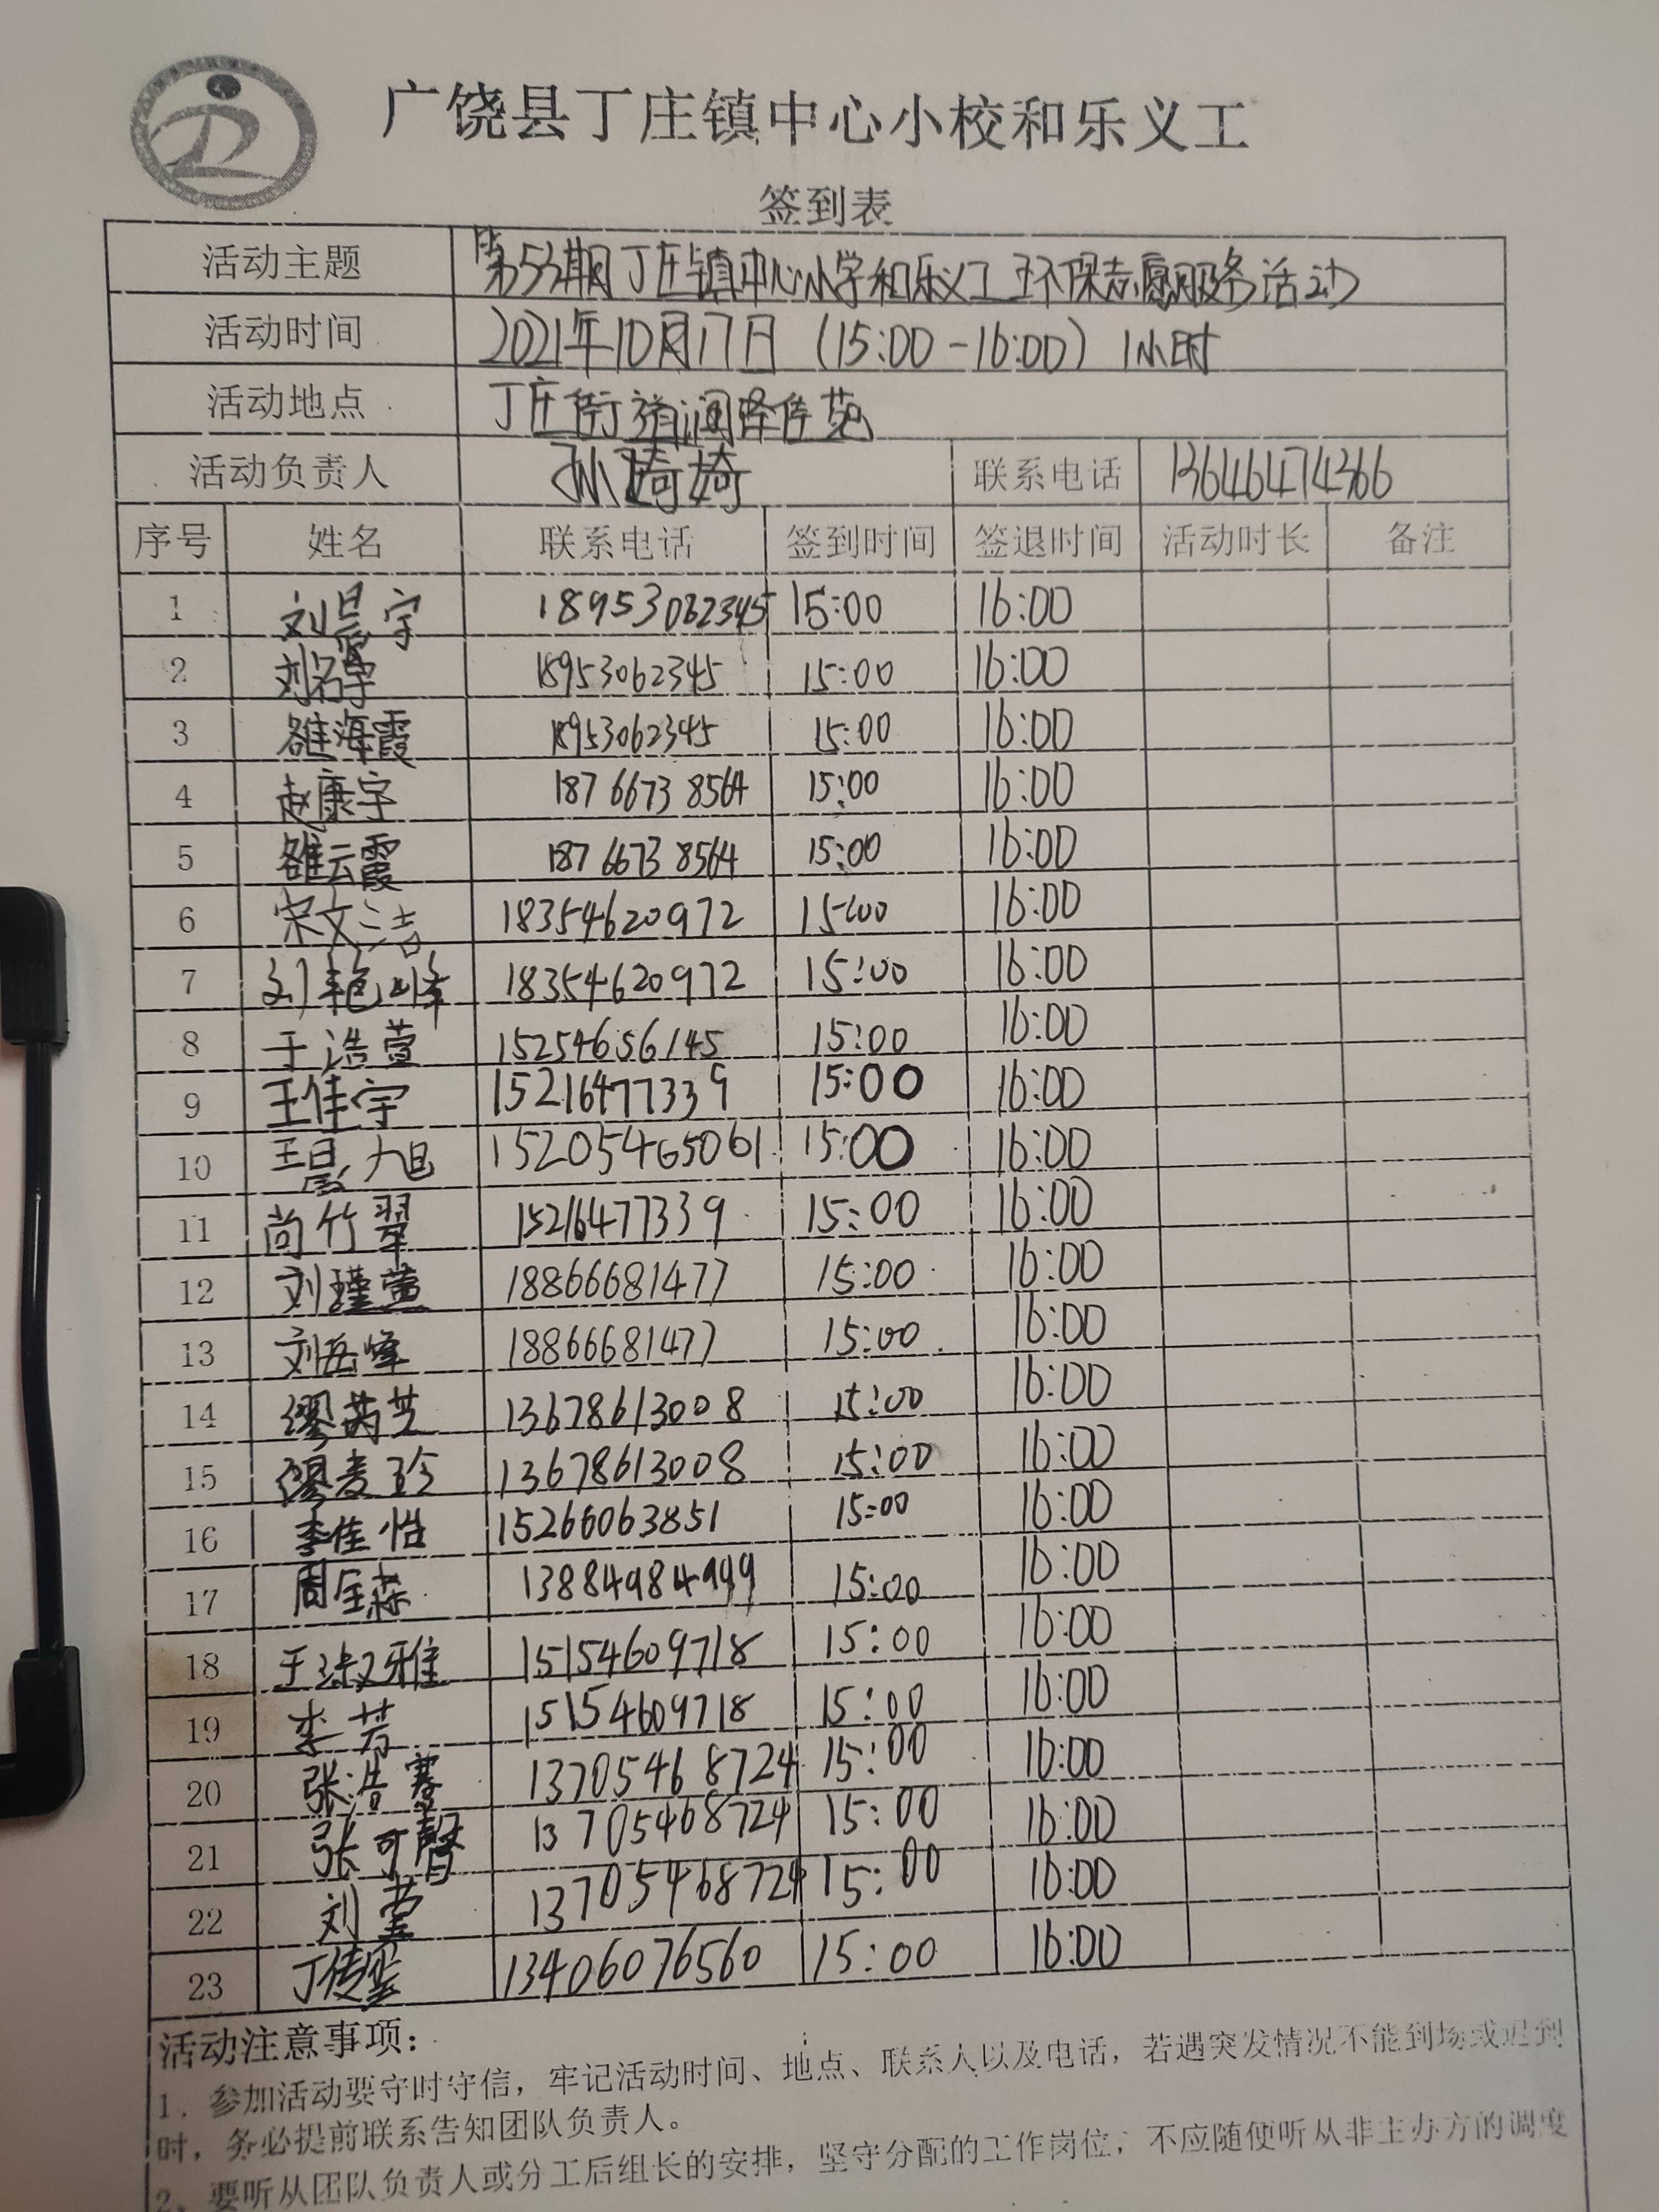 广饶县丁庄镇中心小校和乐义工
签到表
活动主题 第53期丁庄镇中心小学和乐义工环保志愿服务活动
活动时间 2021年10月17日（15:00-16:00）1小时
活动地点 丁庄街道润泽佳苑
活动负责人 孙琦琦 联系电话 13646474366
序号 姓名 联系电话 签到时间 签退时间 活动时长 备注
1 刘晨宇 18953062345 15:00 16:00
2 刘名宇 18953062345 15:00 16:00
3 雒海霞 18953062345 15:00 16:00
4 赵康宇 18766738564 15:00 16:00
5 雒云霞 18766738564 15:00 16:00
6 宋文洁 18354620972 15:00 16:00
7 刘艳峰 18354620972 15:00 16:00
8 于浩萱 15254656145 15:00 16:00
9 王佳宇 15216477339 15:00 16:00
10 王晨旭 15205465061 15:00 16:00
11 尚竹翠 15216477339 15:00 16:00
12 刘瑾萱 18866681477 15:00 16:00
13 刘岳峰 18866681477 15:00 16:00
14 缪芮芝 13678613008 15:00 16:00
15 缪麦珍 13678613008 15:00 16:00
16 李佳怡 15266063851 15:00 16:00
17 周金森 13884984999 15:00 16:00
18 于淑雅 15154609718 15:00 16:00
19 李芳 15154609718 15:00 16:00
20 张浩骞 13705468724 15:00 16:00
21 张可馨 13705468724 15:00 16:00
22 刘 13705468724 15:00 16:00
23 丁传莹 13406076560 15:00 16:00
活动注意事项：
1、参加活动要守时守信，牢记活动时间、地点、联系人以及电话，若遇突发情况不能到场或迟到
时，务必提前联系告知团队负责人。
2、要听从团队负责人或分工后组长的安排，坚守分配的工作岗位，不应随便听从非主办方的调度